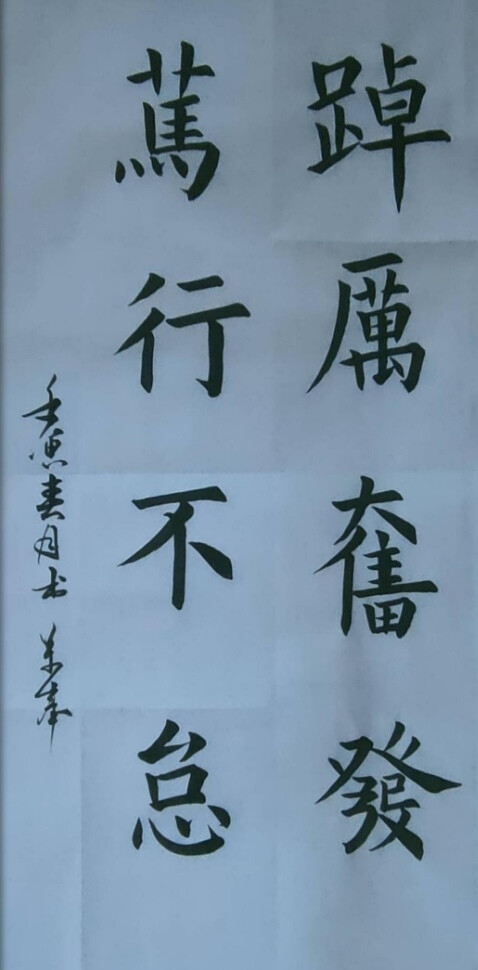 踔厲奮發
篤行不怠
壬寅春月书